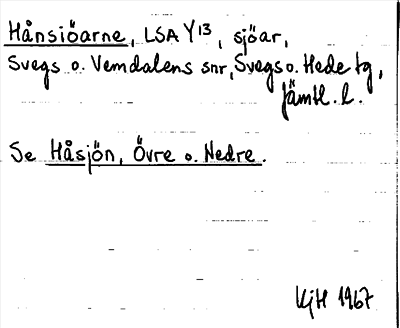 Hånsiöarne, LSA Y13, sjöar,
Svegs o. Vemdalens snr, Svegs o. Hede tg,
Jämtl. l.
Se Håsjön, Övre o. Nedre.
KjH 1967